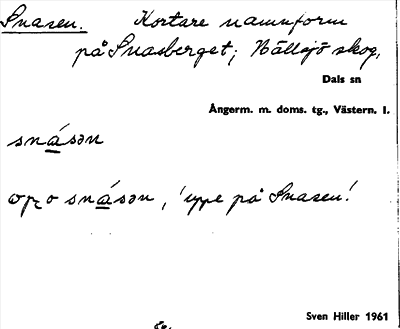 Snasen. Kortare namnform
på Snasberget; Hällsjö skog,
Dals sn
Ångerm. m. doms. tg., Västern. l.
snásən
snásən, 'uppe på Snasen!
Sven Hiller 1961